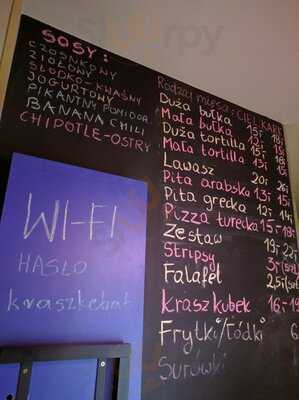 SOSY:
CZOSNKOWY
ZIOŁOWY
SŁODKO-KWAŚNY
JOGURTOWY
PIKANTNY POMIDOR.
BANANA CHILI
CHIPOTLE-OSTRY
WI-FI
HASŁO
kraszkebab
Rodzaj mięsa: CIEL KARK
Duża bułka 15,- 18,-
Mała bułka 13,- 15,-
Duża tortilla 15,- 18,-
Mała tortilla 13,- 15,-
Lawasz 20,- 26,-
Pita arabska 13,- 15,-
Pita grecka 12,- 14,-
Pizza turecka 15,- 18,-
Zestaw 19,- 22,-
Stripsy 3,-
Falafel 2,5,-
Krasz kubek 16,-
Frytki/"Łódki" 6
Surówki